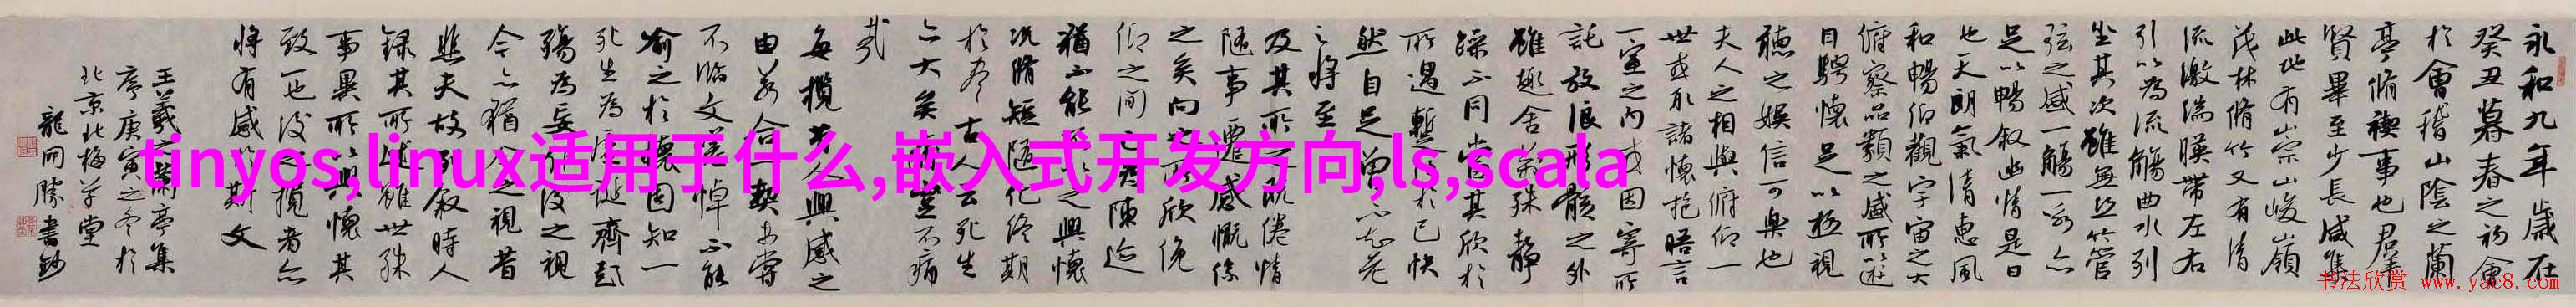 永和九年歲在
癸丑暮春之初會
於會稽山陰之蘭
亭脩禊事也羣
賢畢至少長咸集
此地有崇山峻嶺
茂林脩竹又有清
流激湍暎帶左右
引以為流觴曲水列
坐其次雖無絲竹管
弦之盛一觴一詠亦
足以暢叙幽情是日
也天朗氣清惠風
和暢仰觀宇宙之大
俯察品類之盛所以遊
目騁懷足以極視
聽之娛信可樂也
夫人之相與俯仰一
世或取諸懷抱晤言
一室之內或因寄所
託放浪形骸之外
雖趣舍萬殊靜
躁不同當其欣於
所遇暫得於己快
然自足曾不知老
之將至
及其所之既倦情
隨事遷感慨係
之矣向之所欣俛
仰之間已為陳迹
猶不能不以之興懷
況脩短隨化終期
於盡古人云死生
亦大矣豈不痛
哉
每攬昔人興感之
由若合契未嘗
不臨文嗟悼不能
喻之於懷固知一
死生為虛誕齊彭
殤為妄作後之視
今亦猶今之視昔
悲夫故列叙時人
錄其所述雖世殊
事異所以興懷其
致一也後之攬者亦
將有感於斯文
王羲之蘭亭集
序庚寅之冬於
北京北梅草堂
龍開勝書鈔
tinyos,linux适用于什么,嵌入式开发方向,ls,scala
书法欣赏 www.yac8.com